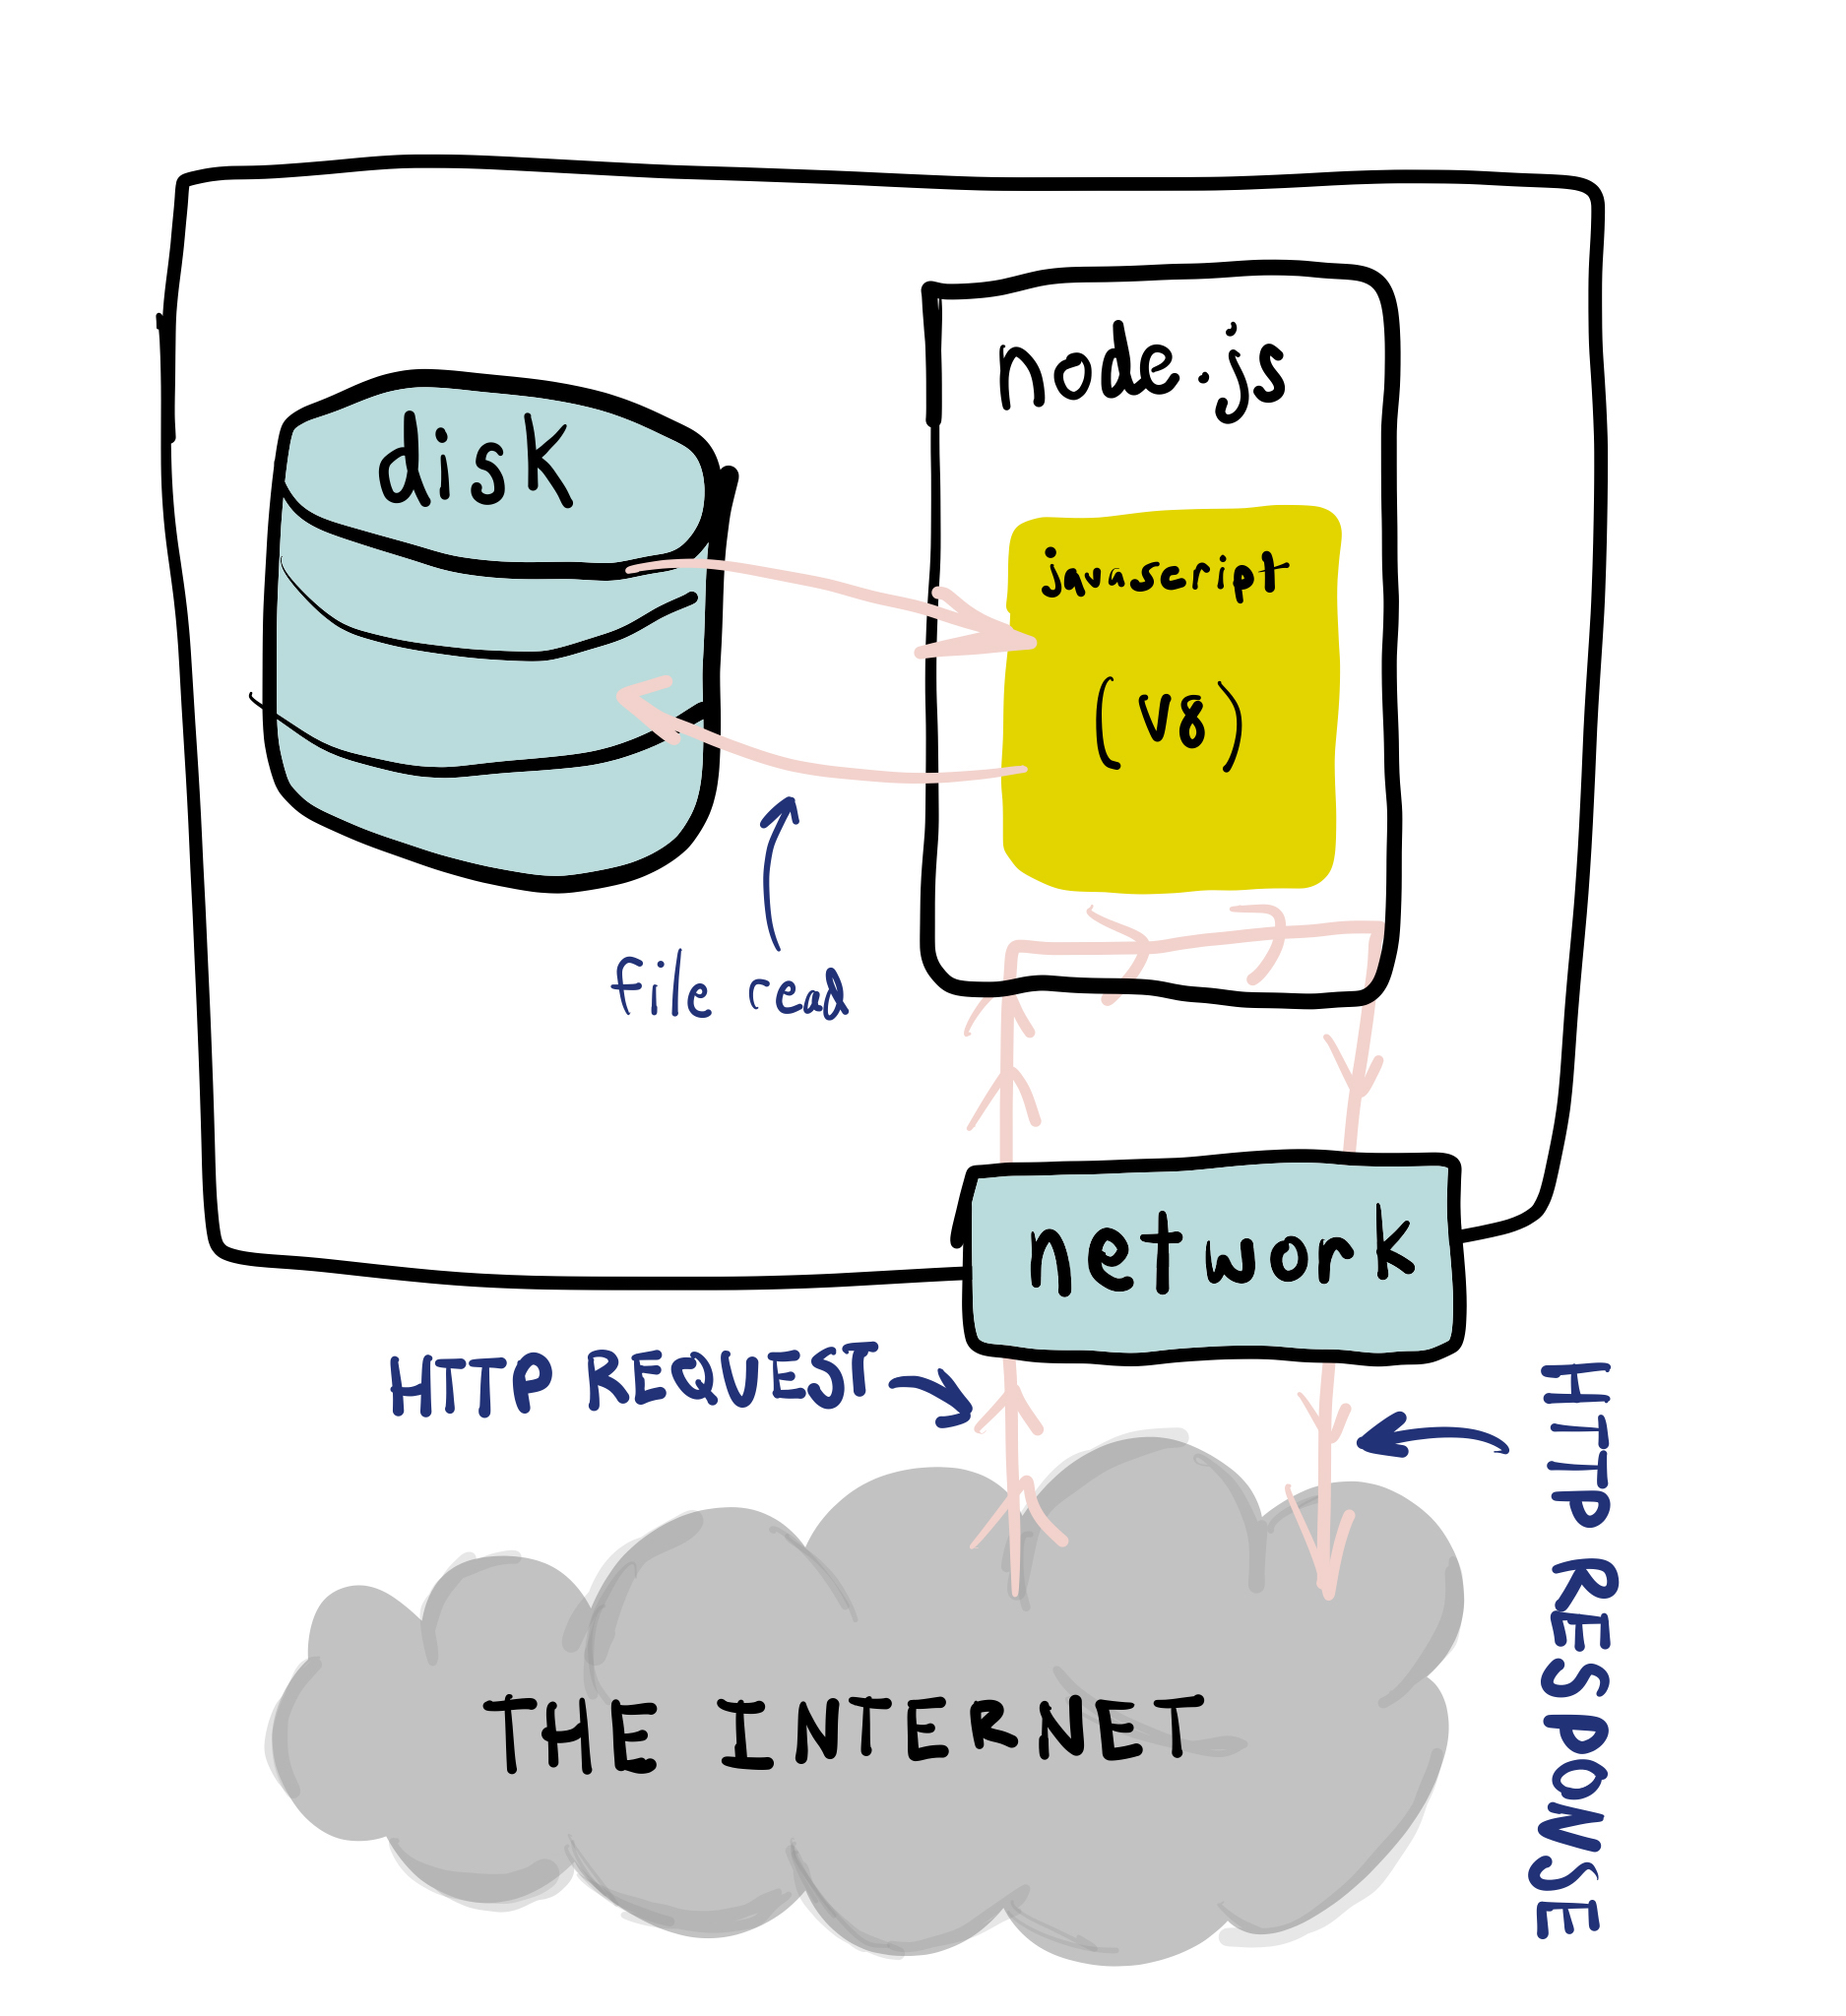 node.js
disk
javascript
(V8)
file read
network
HTTP REQUEST
HTTP RESPONSE
THE INTERNET